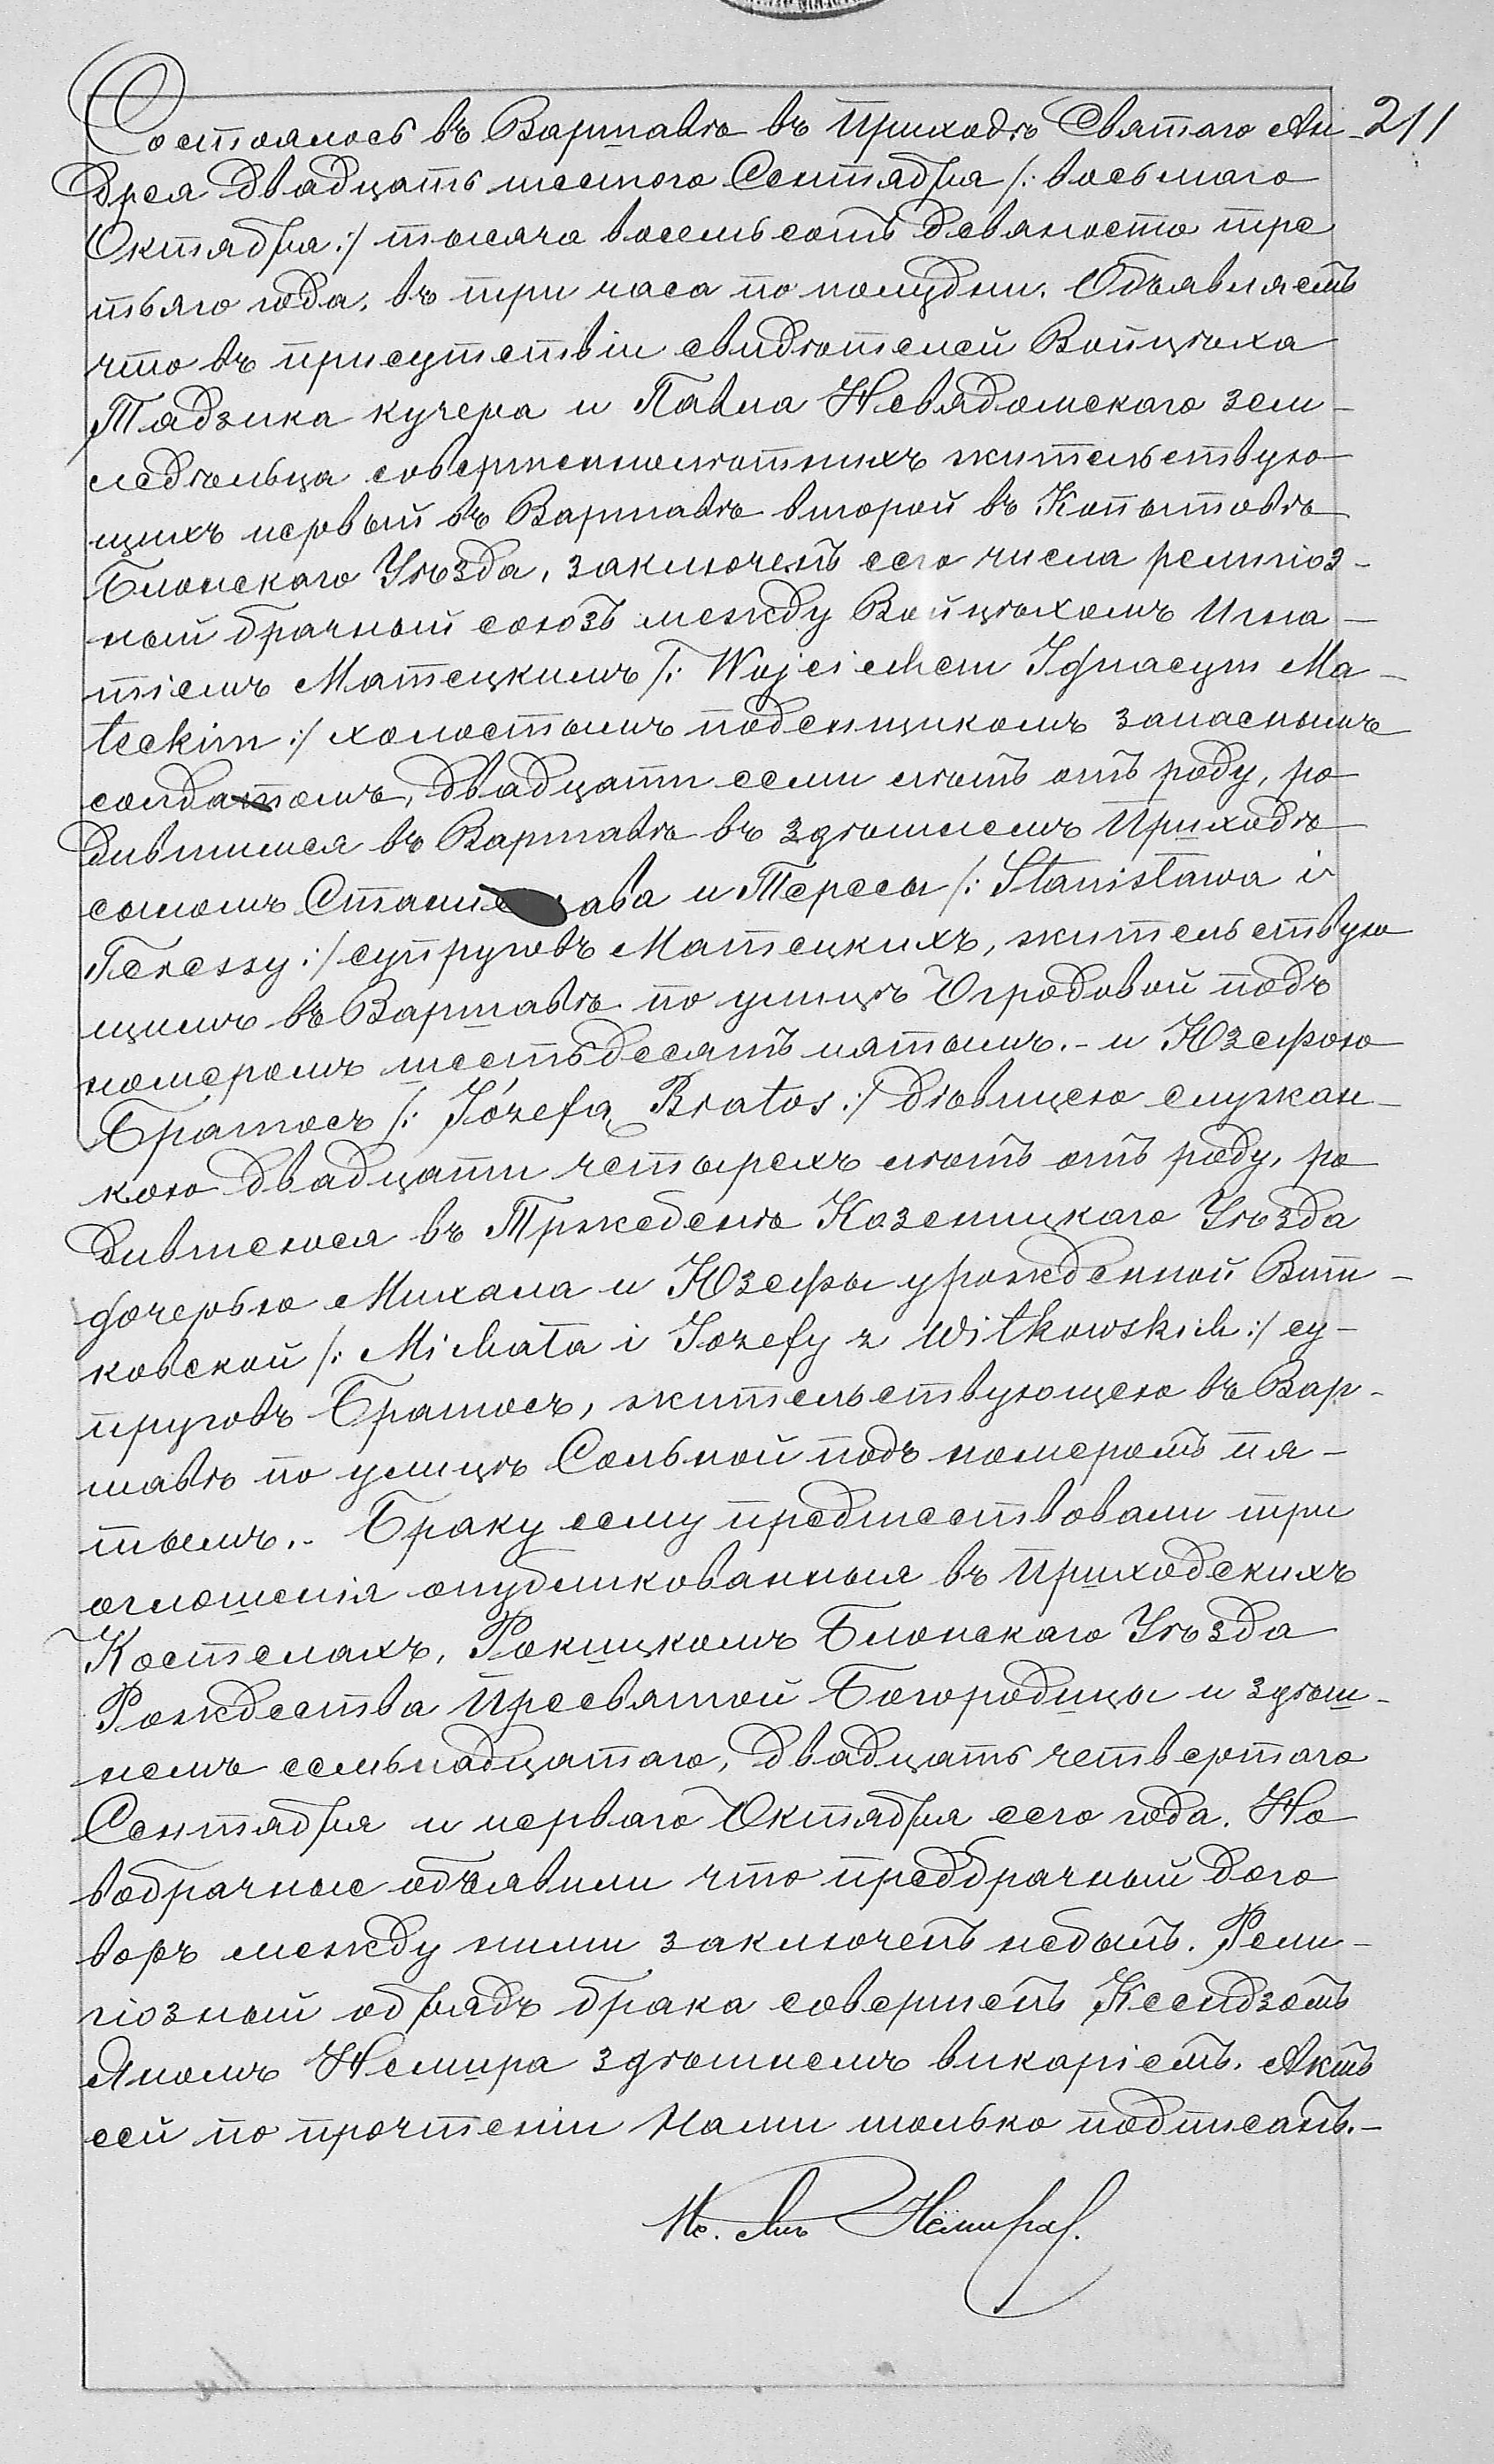 Состоялось въ Варшавѣ въ Приходѣ Святаго Ан- 211
дрея двадцать шестого Сентября /: восьмаго
Октября :/ тысяча восемьсотъ девяносто тре
тьяго года, въ три часа по полудни. Объявляемъ
что въ присутствіи свидѣтелей Войцѣха
Тадзика кучера и Павла Невядомскаго зем-
ледѣльца совершеннолѣтнихъ жительствую
щихъ первый въ Варшавѣ второй въ Копытовѣ
Блонскаго Уѣзда, заключенъ сего числа религіоз-
ный брачный союзъ между Войцѣхомъ Игна-
тіемъ Матецкимъ /: Wojciechem Ignacym Ma-
teckim :/ холостымъ поденщикомъ запаснымъ
солдатомъ, двадцати семи лѣтъ отъ роду, ро
дившимся въ Варшавѣ въ здѣшнемъ Приходѣ
сыномъ Станислава и Тересы /: Stanisława i
Teressy :/ супруговъ Матецкихъ, жительствую
щимъ въ Варшавѣ по улицѣ Огродовой подъ
номеромъ шестьдесятъ пятымъ.- и Юзефою
Братосъ /: Józefą Bratos :/ дѣвицею служан-
кою двадцати четырехъ лѣтъ отъ роду, ро
дившеюся въ Тржебенѣ Козеницкаго Уѣзда
дочерью Михала и Юзефы урожденной Вит-
ковской /: Michała i Jozefy z Witkowskich :/ су-
пруговъ Братосъ, жительствующею въ Вар-
шавѣ по улицѣ Сольной подъ номеромъ пя-
тымъ.- Браку сему предшествовали три
оглошенія опубликованныя въ Приходскихъ
Костелахъ, Рокицкомъ Блонскаго Уѣзда
Рождества Пресвятой Богородицы и здѣш-
немъ семьнадцатаго, двадцать четвертаго
Сентября и перваго Октября сего года. Но
вобрачные объявили что предбрачный дого
воръ между ними заключенъ небылъ. Рели-
гіозный обрядъ брака совершенъ Ксендзомъ
Яномъ Немира здѣшнемъ викаріемъ. Актъ
сей по прочтеніи Нами только подписанъ.-
Кс. Янъ Немира